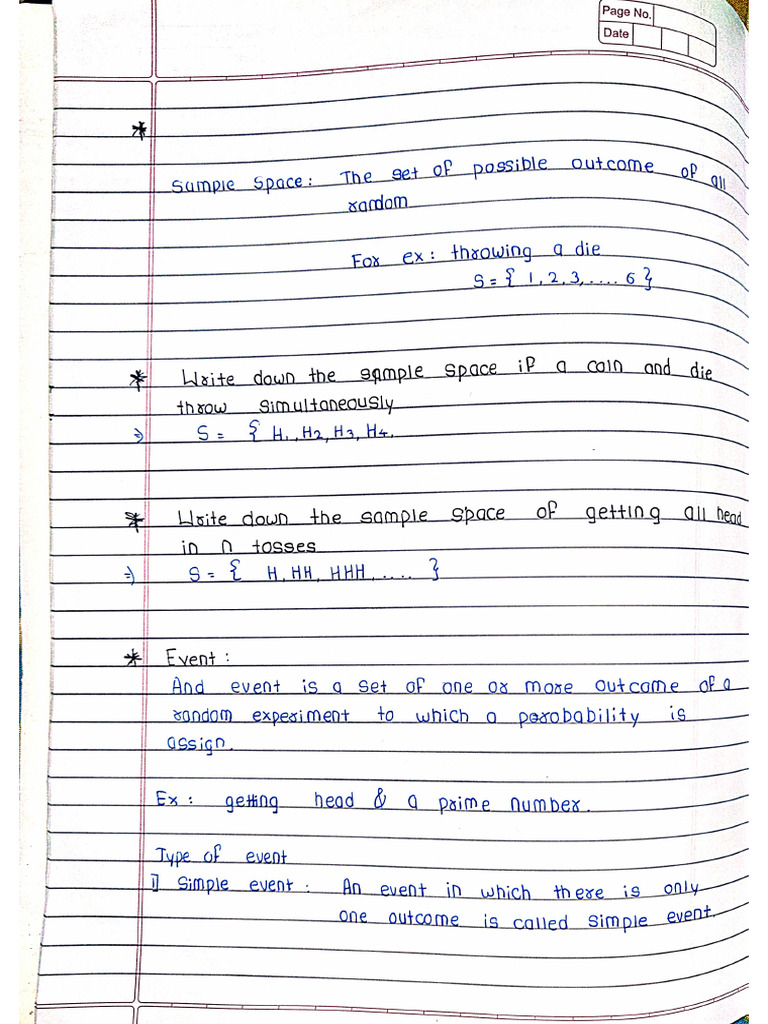 Page No.
Date
*
Sample Space: The set of possible outcome of all
random
For ex: throwing a die
S = { 1, 2, 3, .... 6 }
* Write down the sample space if a coin and die
throw simultaneously
⇒ S = { H1, H2, H3, H4.
* Write down the sample space of getting all head
in n tosses
⇒ S = { H, HH, HHH, .... }
* Event :
And event is a set of one or more outcome of a
random experiment to which a porobability is
assign.
Ex : getting head & a prime number.
Type of event
1] Simple event : An event in which there is only
one outcome is called simple event.